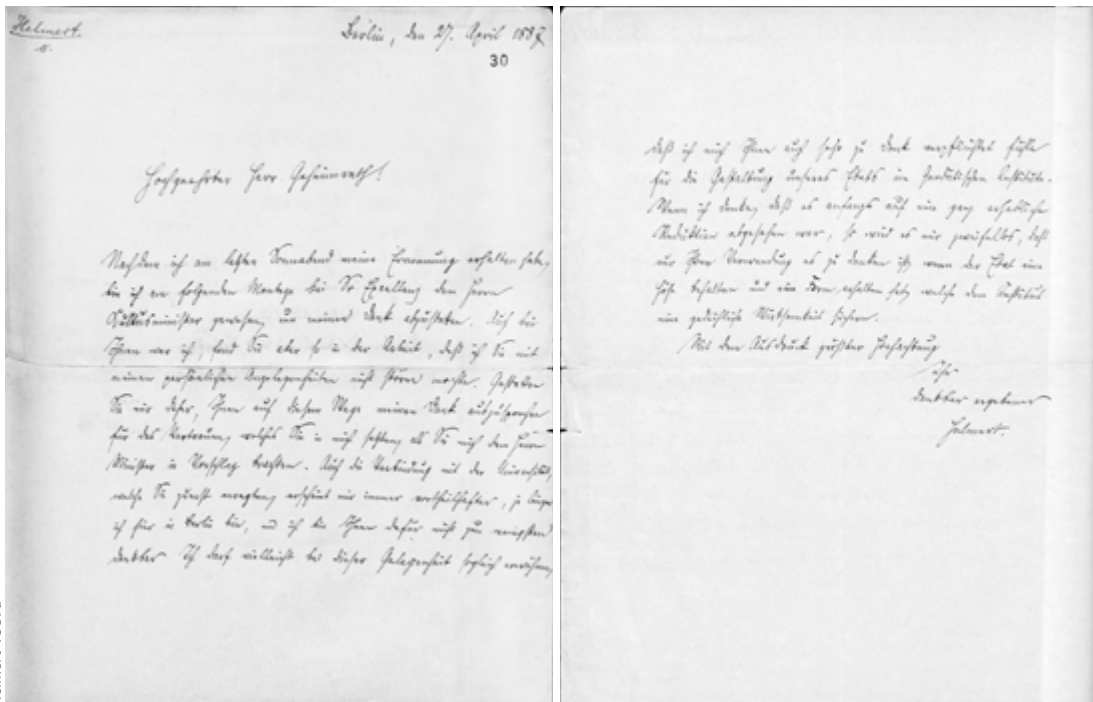 Helmert.
Berlin, den 27. April 1887
30
Hochgeehrter Herr Geheimrath!
Nachdem ich am letzten Sonnabend meine Ernennung erhalten habe,
bin ich am folgenden Montage bei Sr Excellenz dem Herrn
Kultusminister gewesen, um meinen Dank abzustatten. Auch bei
Ihnen war ich, fand Sie aber so in der Arbeit, daß ich Sie mit
meinen persönlichen Angelegenheiten nicht stören mochte. Gestatten
Sie mir daher, Ihnen auf diesem Wege meinen Dank auszusprechen
für das Vertrauen, welches Sie in mich setzten, als Sie mich dem Herrn
Minister in Vorschlag brachten. Auch die Verbindung mit der Universität,
welche Sie zuerst anregten, erscheint mir immer vortheilhafter, je länger
ich hier in Berlin bin, und ich bin Ihnen dafür nicht zum wenigsten
dankbar. Ich darf vielleicht bei dieser Gelegenheit sogleich erwähnen,
daß ich mich Ihnen auch sehr zu Dank verpflichtet fühle
für die Gestaltung unseres Etats im Geodätischen Institute.
Wenn ich denke, daß es anfangs auf eine ganz erhebliche
Reduktion abgesehen war, so wird es mir zweifellos, daß
nur Ihrer Verwendung es zu danken ist, wenn der Etat eine
Höhe behalten und eine Form erhalten hat, welche dem Institut
eine gedeihliche Wirksamkeit sichern.
Mit dem Ausdruck größter Hochachtung
Ihr
dankbar ergebener
Helmert.